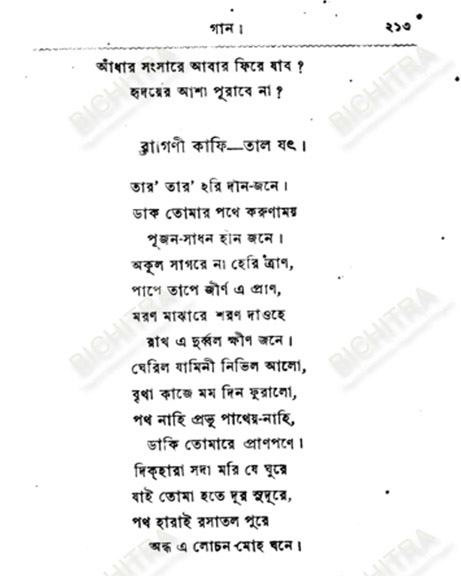 গান।
২১৩
আঁধার সংসারে আবার ফিরে যাব ?
হৃদয়ের আশা পূরাবে না ?
রাগিণী কাফি—তাল যৎ।
তার' তার' হরি দীন-জনে।
ডাক তোমার পথে করুণাময়
পূজন-সাধন হীন জনে।
অকূল সাগরে না হেরি ত্রাণ,
পাপে তাপে জীর্ণ এ প্রাণ,
মরণ মাঝারে শরণ দাওহে
রাখ এ দুর্ব্বল ক্ষীণ জনে।
ঘেরিল যামিনী নিভিল আলো,
বৃথা কাজে মম দিন ফুরালো,
পথ নাহি প্রভু পাথেয়-নাহি,
ডাকি তোমারে প্রাণপণে।
দিক্‌হারা সদা মরি যে ঘুরে
যাই তোমা হতে দূর সুদূরে,
পথ হারাই রসাতল পুরে
অন্ধ এ লোচন মোহ ঘনে।
BICHITRA
BICHITRA
BICHITRA
BICHITRA
BICHITRA
BICHITRA